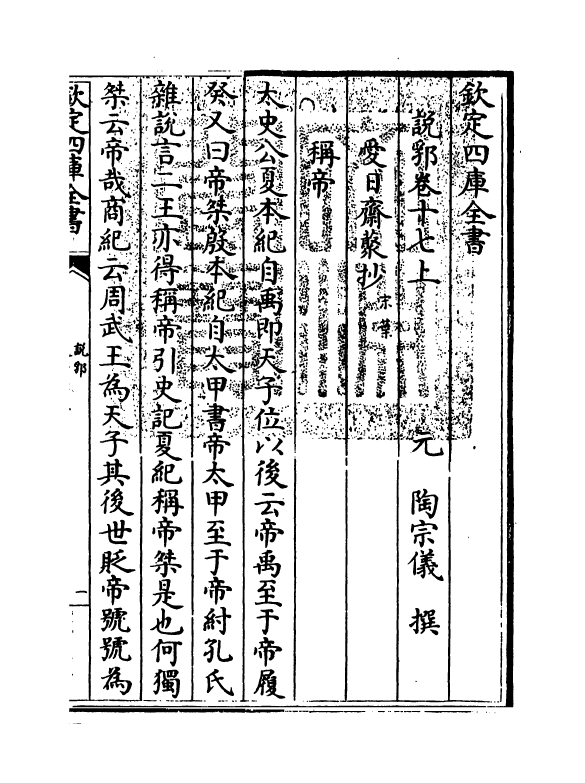 欽定四庫全書
說郛卷十七上　元　陶宗儀　撰
愛日齋藂抄 宋葉
稱帝
太史公夏本紀自禹即天子位以後云帝禹至于帝履
癸又曰帝桀殷本紀自太甲書帝太甲至于帝紂孔氏
雜說言二王亦得稱帝引史記夏紀稱帝桀是也何獨
桀云帝哉商紀云周武王為天子其後世貶帝號號為
欽定四庫全書
說郛
二